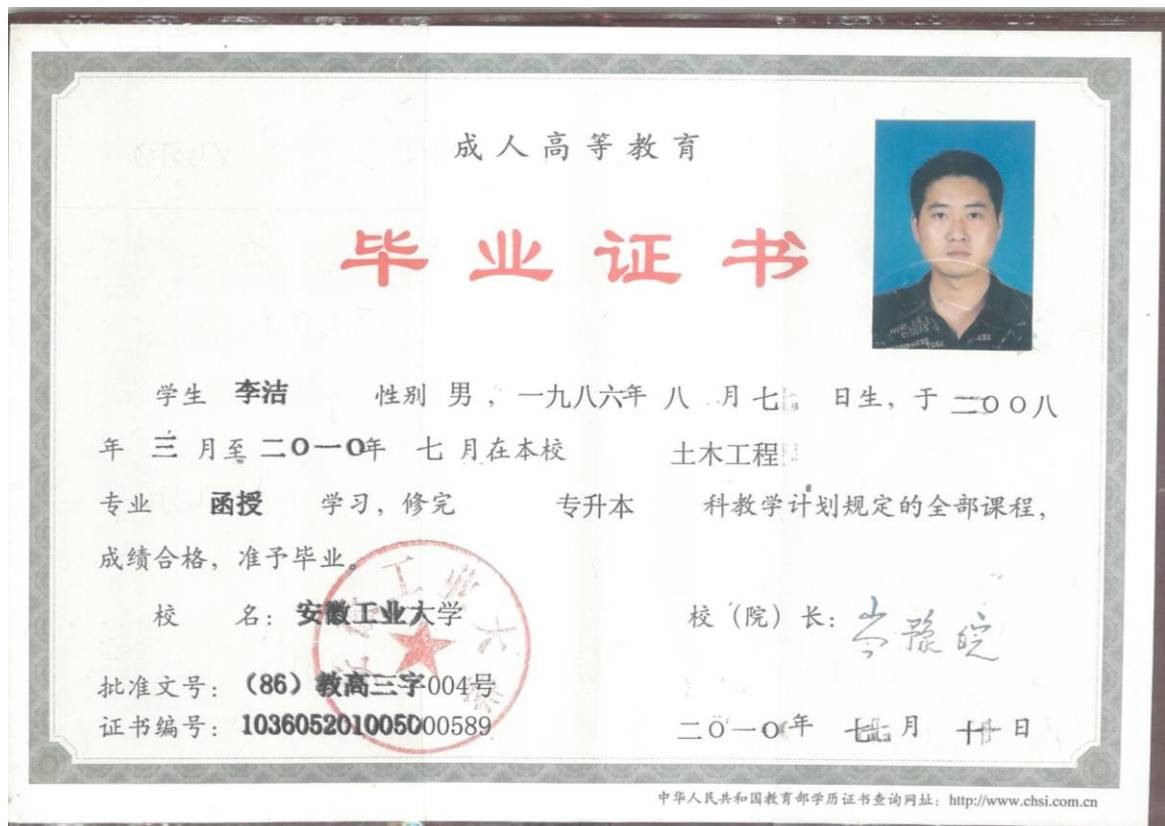 成人高等教育
毕业证书
学生 李洁 性别 男 ，一九八六年 八 月 七 日生，于 二〇〇八
年 三 月至 二〇一〇年 七 月在本校 土木工程
专业 函授 学习，修完 专升本 科教学计划规定的全部课程，
成绩合格，准予毕业。
校 名：安徽工业大学 校（院）长：岑豫皖
批准文号：（86）教高三字004号
证书编号：103605201005000589 二〇一〇年 七 月 十 日
中华人民共和国教育部学历证书查询网址：http://www.chsi.com.cn